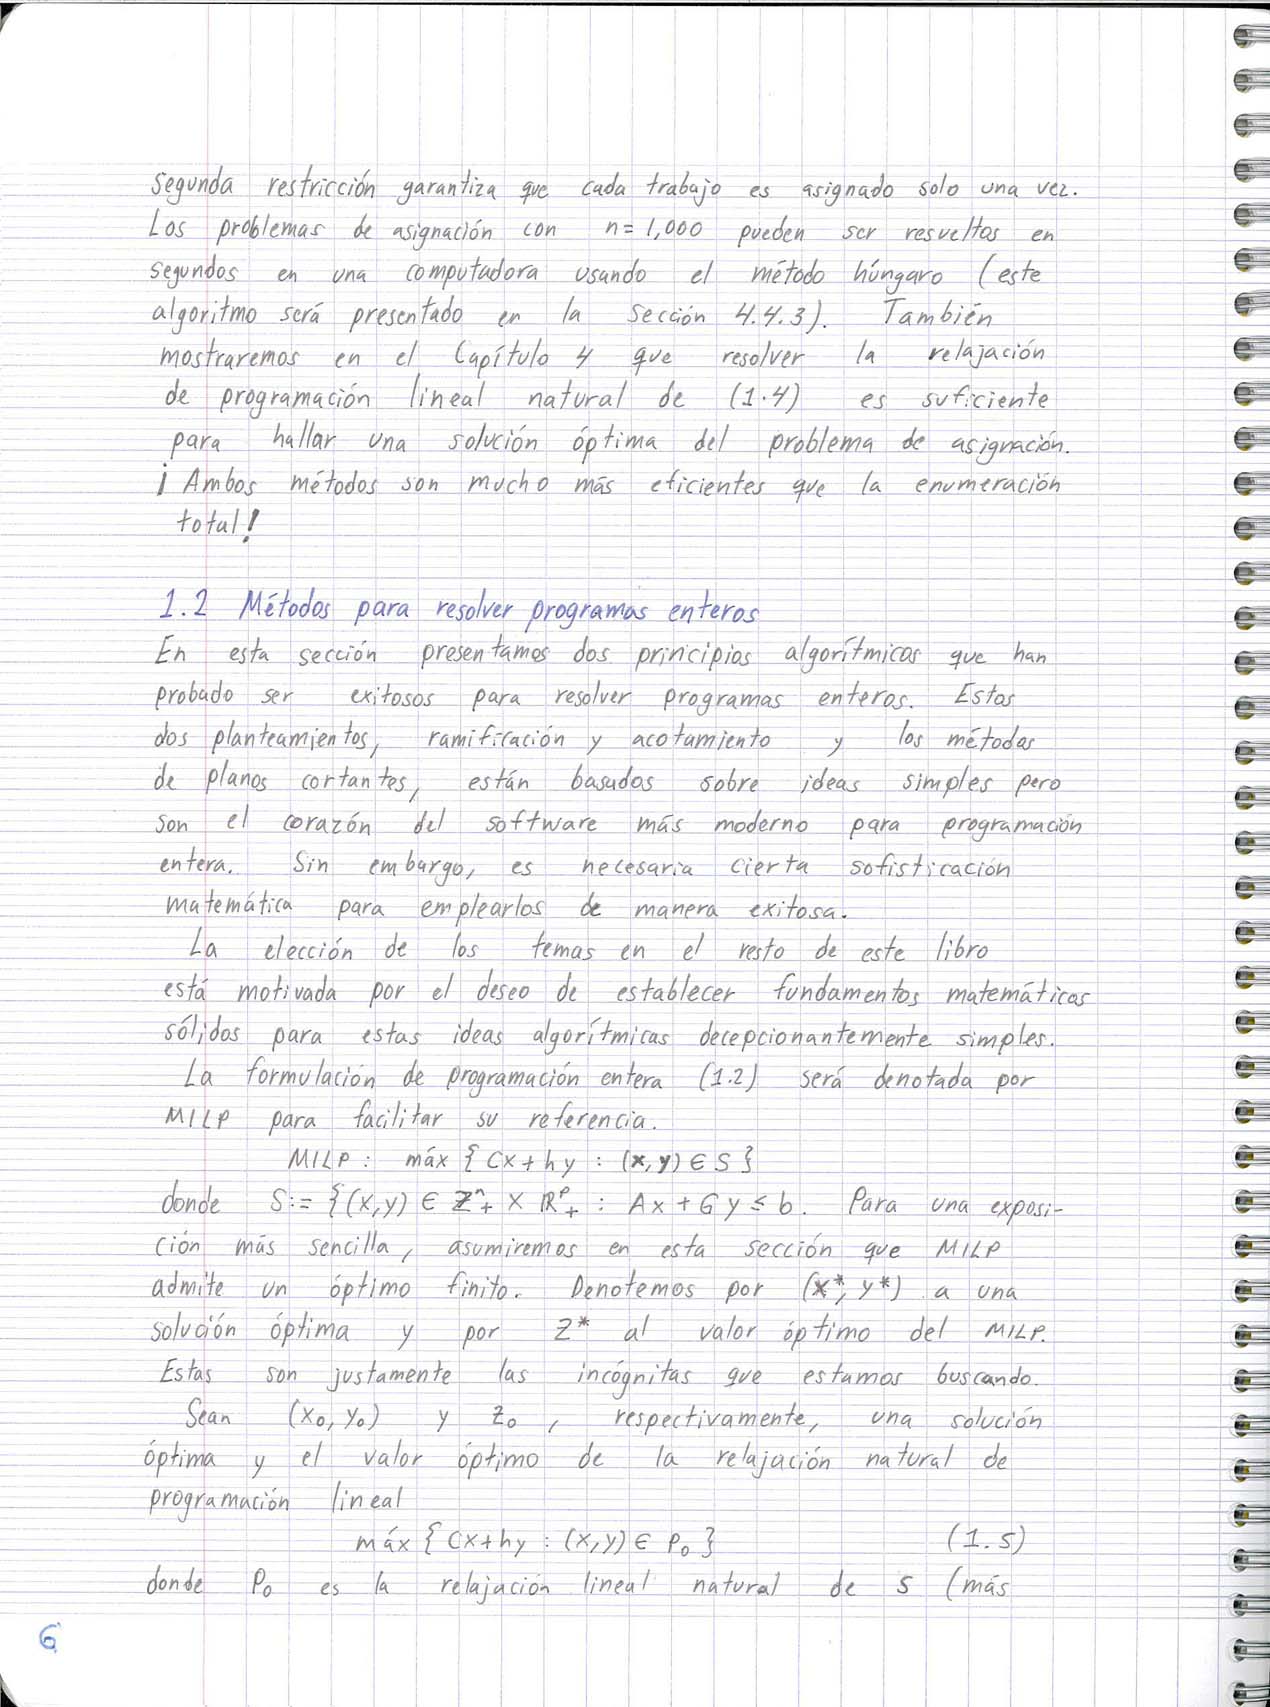 segunda restricción garantiza que cada trabajo es asignado solo una vez.
Los problemas de asignación con n=1,000 pueden ser resueltos en
segundos en una computadora usando el método húngaro (este
algoritmo será presentado en la Sección 4.4.3). También
mostraremos en el Capítulo 4 que resolver la relajación
de programación lineal natural de (1.4) es suficiente
para hallar una solución óptima del problema de asignación.
¡Ambos métodos son mucho más eficientes que la enumeración
total!
1.2 Métodos para resolver programas enteros
En esta sección presentamos dos principios algorítmicos que han
probado ser exitosos para resolver programas enteros. Estos
dos planteamientos, ramificación y acotamiento y los métodos
de planos cortantes, están basados sobre ideas simples pero
son el corazón del software más moderno para programación
entera. Sin embargo, es necesaria cierta sofisticación
matemática para emplearlos de manera exitosa.
La elección de los temas en el resto de este libro
está motivada por el deseo de establecer fundamentos matemáticos
sólidos para estas ideas algorítmicas decepcionantemente simples.
La formulación de programación entera (1.2) será denotada por
MILP para facilitar su referencia.
MILP: máx { cx + hy : (x,y) ∈ S }
donde S := {(x,y) ∈ ℤⁿ₊ × ℝᵖ₊ : Ax + Gy ≤ b. Para una exposi-
ción más sencilla, asumiremos en esta sección que MILP
admite un óptimo finito. Denotemos por (x*, y*) a una
solución óptima y por z* al valor óptimo del MILP.
Estas son justamente las incógnitas que estamos buscando.
Sean (x₀, y₀) y z₀, respectivamente, una solución
óptima y el valor óptimo de la relajación natural de
programación lineal
máx { cx + hy : (x,y) ∈ P₀ } (1.5)
donde P₀ es la relajación lineal natural de S (más
6